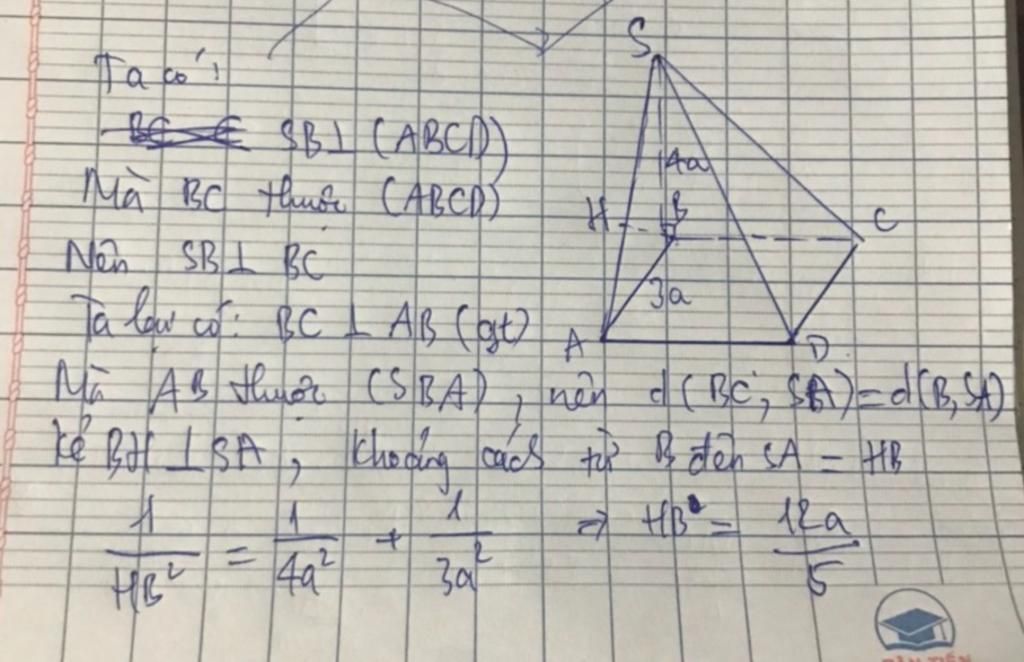 Ta có:
SB ⊥ (ABCD)
Mà BC thuộc (ABCD)
Nên SB ⊥ BC
Ta lại có: BC ⊥ AB (gt)
Mà AB thuộc (SBA), nên d(BC, SA) = d(B, SA)
Kẻ BH ⊥ SA, khoảng cách từ B đến SA = HB
1/HB² = 1/4a² + 1/3a² ⇒ HB = 12a/5
S
4a
H
B
C
3a
A
D